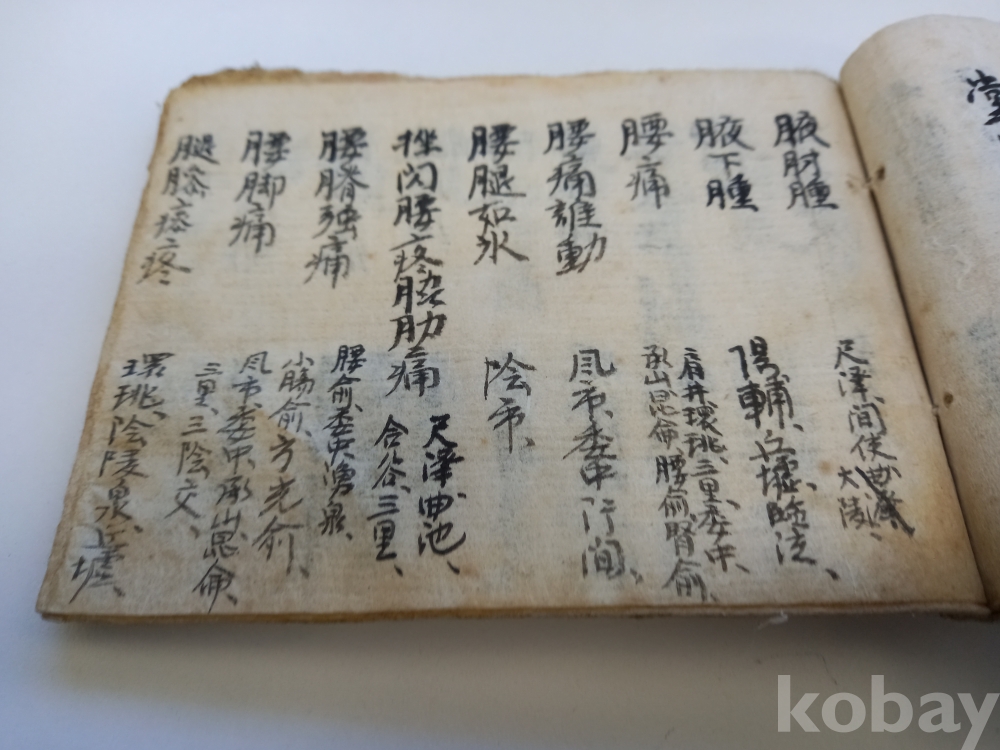 腋肘腫
尺澤、間使、曲澤
大陵、
腋下腫
陽輔、丘墟、臨泣、
腰痛
肩井環跳、三里、委中、
承山昆侖、腰俞、腎俞、
腰痛誰動
風市、委中行間、
腰腿如水
陰市、
挫閃腰疼脇肋痛
尺澤、曲池、
合谷、三里、
腰脊强痛
腰俞、委中、湧泉、
小腸俞、方光俞、
腰脚痛
風市、委中、承山、昆侖、
三里、三陰交、
腿膝痠疼
環珧、陰陵泉、丘墟、
kobay